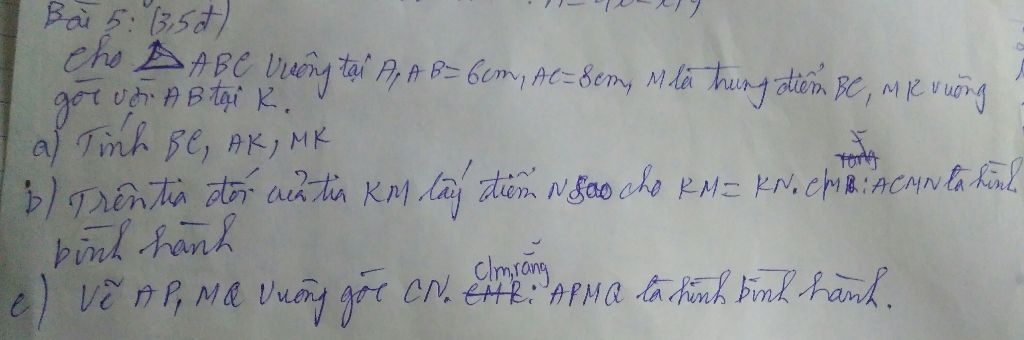 Bài 5: (3,5đ)
Cho ABC vuông tại A, AB = 6cm, AC = 8cm, M là trung điểm BC, MK vuông
góc với AB tại K.
a) Tính BC, AK, MK
b) Trên tia đối của tia KM lấy điểm N sao cho KM = KN. CMR: ACMN là hình
bình hành
c/m rằng
c) Vẽ AP, MQ vuông góc CN. CMR: APMQ là hình bình hành.